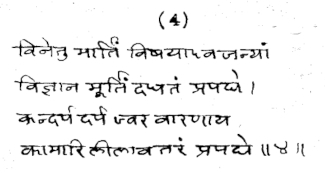 (4)
विनेतु मार्तिं विषयाध्वजन्यां
विज्ञान मूर्तिं दधतं प्रपद्ये ।
कन्दर्प दर्प ज्वर वारणाय
कामारि लीलावतरं प्रपद्ये ॥४॥